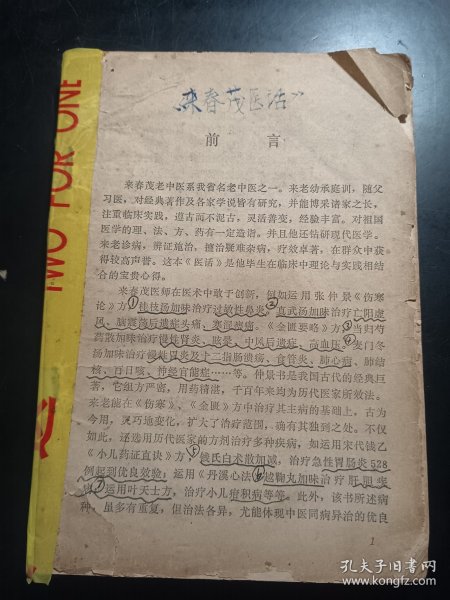 TWO FOR ONE
"来春茂医话"
前 言
来春茂老中医系我省名老中医之一。来老幼承庭训，随父
习医，对经典著作及各家学说皆有研究，并能博采诸家之长，
注重临床实践，遵古而不泥古，灵活善变，经验丰富。对祖国
医学的理、法、方、药有一定造诣。并且他还钻研现代医学。
来老诊病，辨证施治，擅治疑难杂病，疗效卓著，在群众中获
得较高声誉。这本《医话》是他毕生在临床中理论与实践相结
合的宝贵心得。
来春茂医师在医术中敢于创新，例如运用张仲景《伤寒
论》方①桂枝汤加味治疗过敏性鼻炎②真武汤加味治疗亡阳虚
风、脑震荡后遗症头痛、寒湿痹痛。《金匮要略》方③当归芍
药散加味治疗慢性肾炎、眩晕、中风后遗症、高血压④麦门冬
汤加味治疗慢性胃炎及十二指肠溃疡、食管炎、肺心病、肺结
核、百日咳、神经官能症……等。仲景书是我国古代的经典巨
著，它组方严密，用药精湛，千百年来均为历代医家所效法。
来老能在《伤寒》、《金匮》方中治疗其主病的基础上，古为
今用，灵巧地变化，扩大了治疗范围，确有其独到之处。不仅
如此，还选用历代医家的方剂治疗多种疾病，如运用宋代钱乙
《小儿药证直诀》方⑤钱氏白术散加减，治疗急性胃肠炎528
例起到优良效验；运用《丹溪心法》⑥越鞠丸加味治疗肝胆疾
患；⑦运用叶天士方，治疗小儿疳积病等等。此外，该书所述病
种，虽多有重复，但治法各异，尤能体现中医同病异治的优良
1
孔夫子旧书网
www.kongfz.com